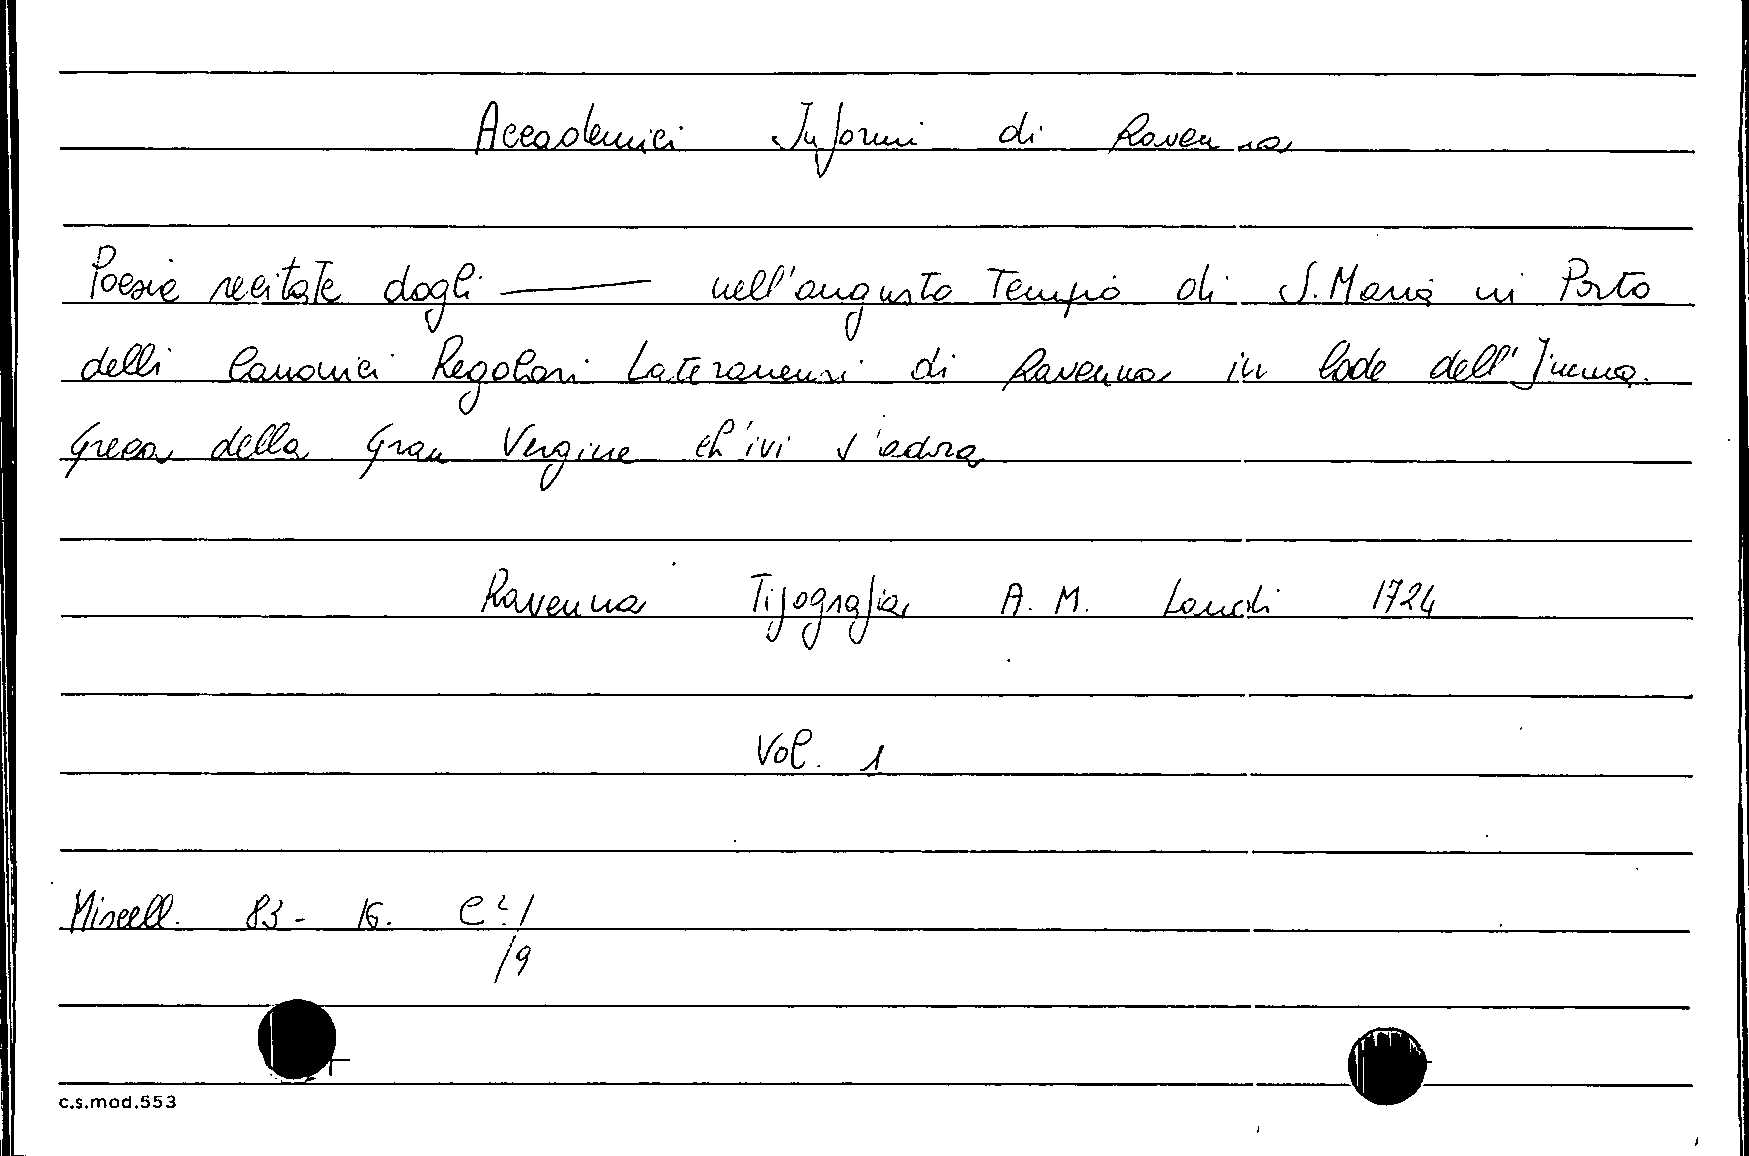 Accademici Informi di Ravenna
Poesie recitate dagli —— nell'augusto Tempio di S. Maria in Porto
delli Canonici Regolari Lateranensi di Ravenna in lode dell'Imma.
Greca della Gran Vergine ch'ivi s'adora
Ravenna Tipografia A. M. Landi 1724
Vol. 1
Miscell. 83 - 16.
/9
c.s.mod.553